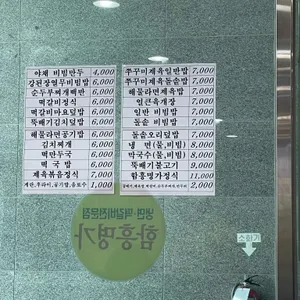 야채 비빔만두 4,000
강된장열무비빔밥 6,000
순두부찌개백반 6,000
떡갈비정식 6,000
떡갈비마요덮밥 6,000
뚝배기김치덮밥 6,000
해물라면공기밥 6,000
김치찌개 6,000
떡만두국 6,000
떡국밥 6,000
제육볶음정식 7,000
계란,후라이,공기밥,음료수 1,000
쭈꾸미제육일반밥 7,000
쭈꾸미제육돌솥밥 7,000
해물라면제육밥 7,000
얼큰육개장 7,000
일반 비빔밥 7,000
돌솥 비빔밥 7,000
돌솥오리덮밥 7,000
냉 면(물,비빔) 8,000
막국수(물,비빔) 8,000
뚝배기불고기 9,000
함흥명가정식 11,000
2,000
냉면·떡갈비전문점
함흥명가
소화기